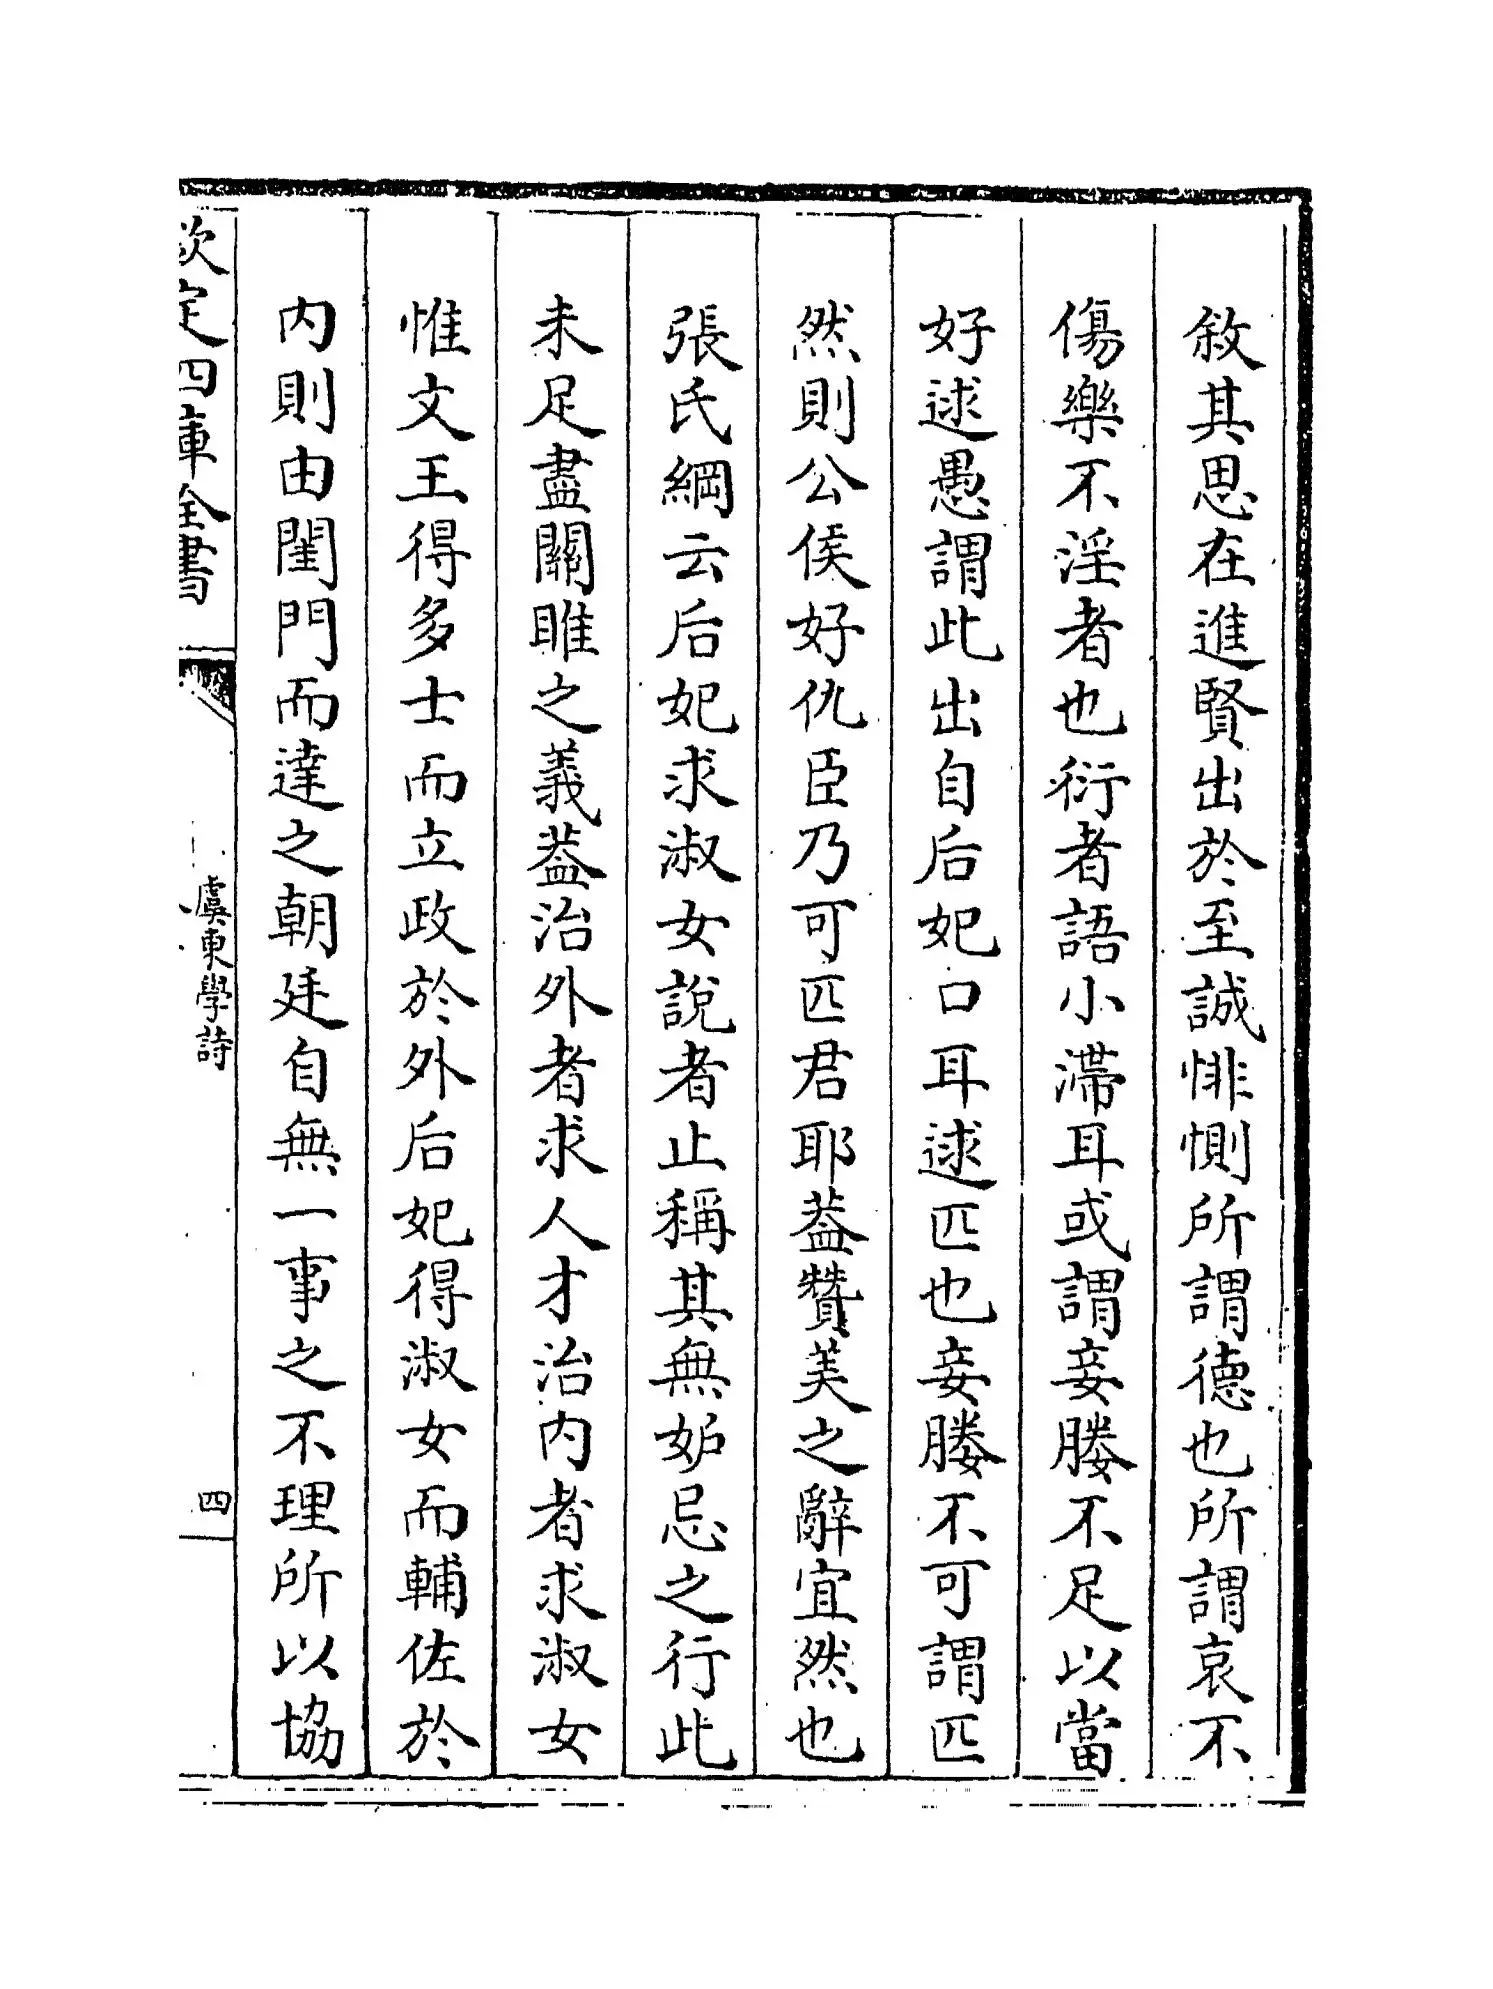 敘其思在進賢出於至誠悱惻所謂德也所謂哀不
傷樂不淫者也衍者語小滯耳或謂妾媵不足以當
好逑愚謂此出自后妃口耳逑匹也妾媵不可謂匹
然則公侯好仇臣乃可匹君耶葢贊美之辭宜然也
張氏綱云后妃求淑女說者止稱其無妒忌之行此
未足盡關雎之義葢治外者求人才治内者求淑女
惟文王得多士而立政於外后妃得淑女而輔佐於
内則由閨門而達之朝廷自無一事之不理所以協
欽定四庫全書
虞東學詩
四